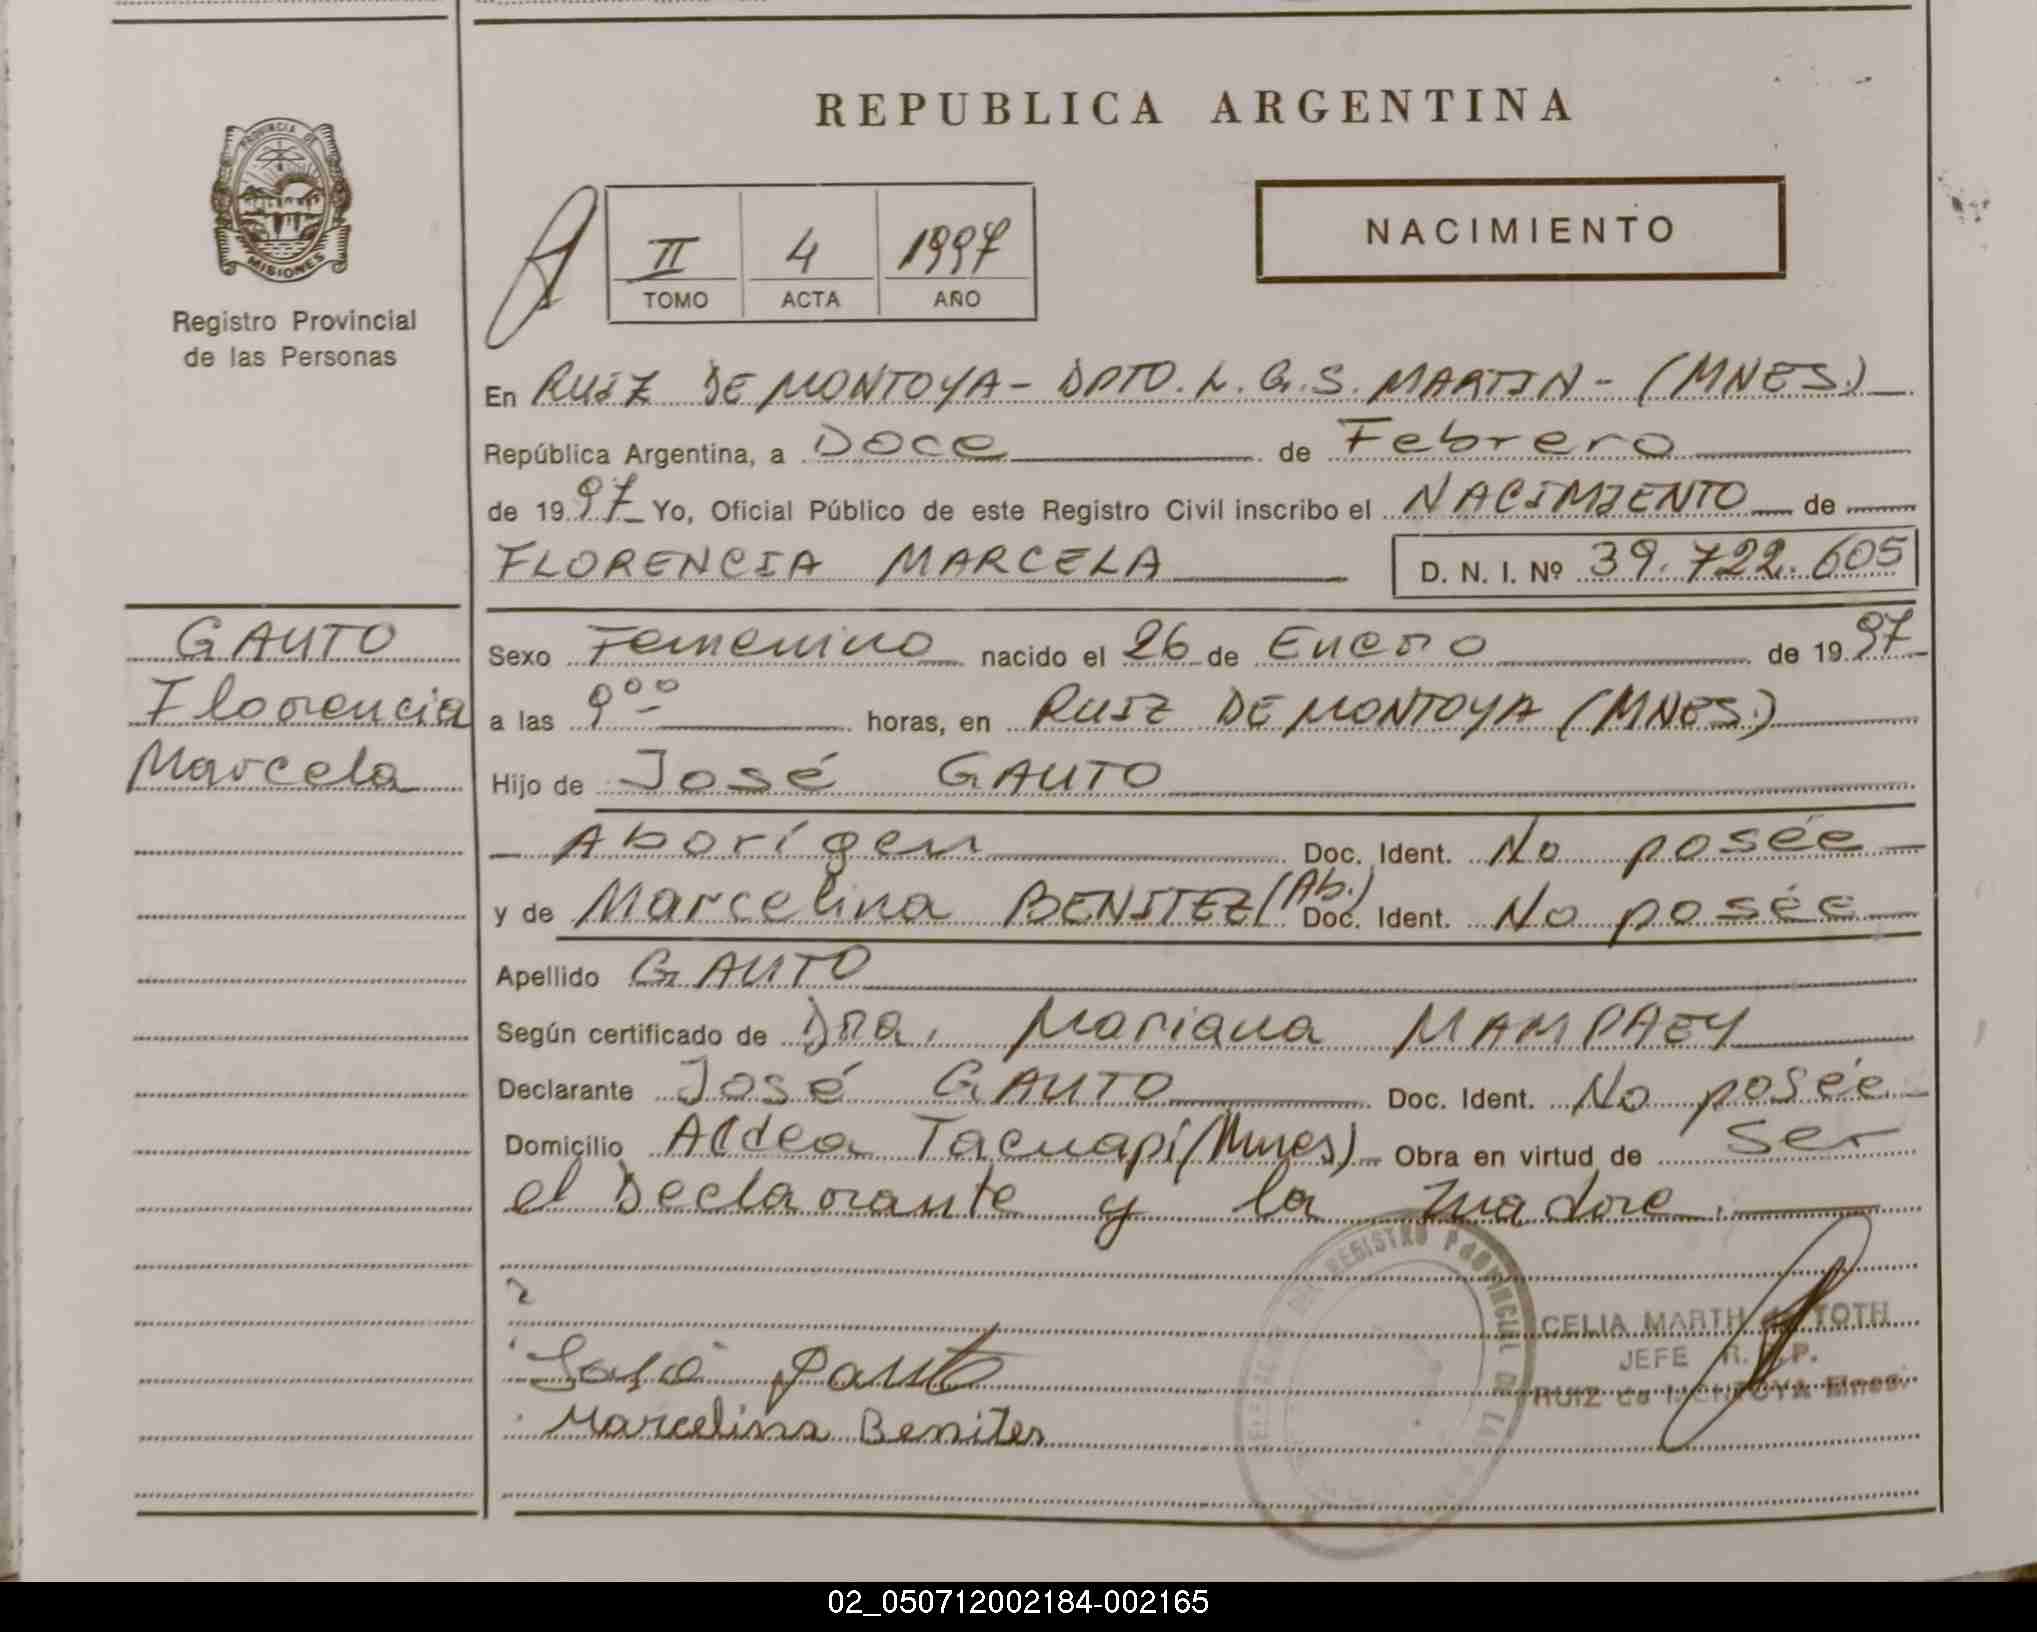 REPUBLICA ARGENTINA
PROVINCIA DE
MISIONES
Registro Provincial
de las Personas
II 4 1997
TOMO ACTA AÑO
NACIMIENTO
En RUIZ DE MONTOYA - DPTO. L. G. S. MARTIN - (MNES.)
República Argentina, a Doce de Febrero
de 1997 Yo, Oficial Público de este Registro Civil inscribo el NACIMIENTO de
FLORENCIA MARCELA D. N. I. Nº 39.722.605
GAUTO
Florencia
Marcela
Sexo Femenino nacido el 26 de Enero de 1997
a las 9⁰⁰ horas, en RUIZ DE MONTOYA (MNES.)
Hijo de José GAUTO
Aborígen Doc. Ident. No posée
y de Marcelina BENITEZ (Ab.) Doc. Ident. No posée
Apellido GAUTO
Según certificado de Dra. Mariana MAMPAEY
Declarante José GAUTO Doc. Ident. No posée
Domicilio Aldea Tacuapí (Mnes) Obra en virtud de ser
el Declarante y la madre.
José Gauto
Marcelina Benites
REGISTRO PROVINCIAL DE LA
CELIA TOTH
JEFE R. P.
RUIZ de MONTOYA Mnes.
02_050712002184-002165